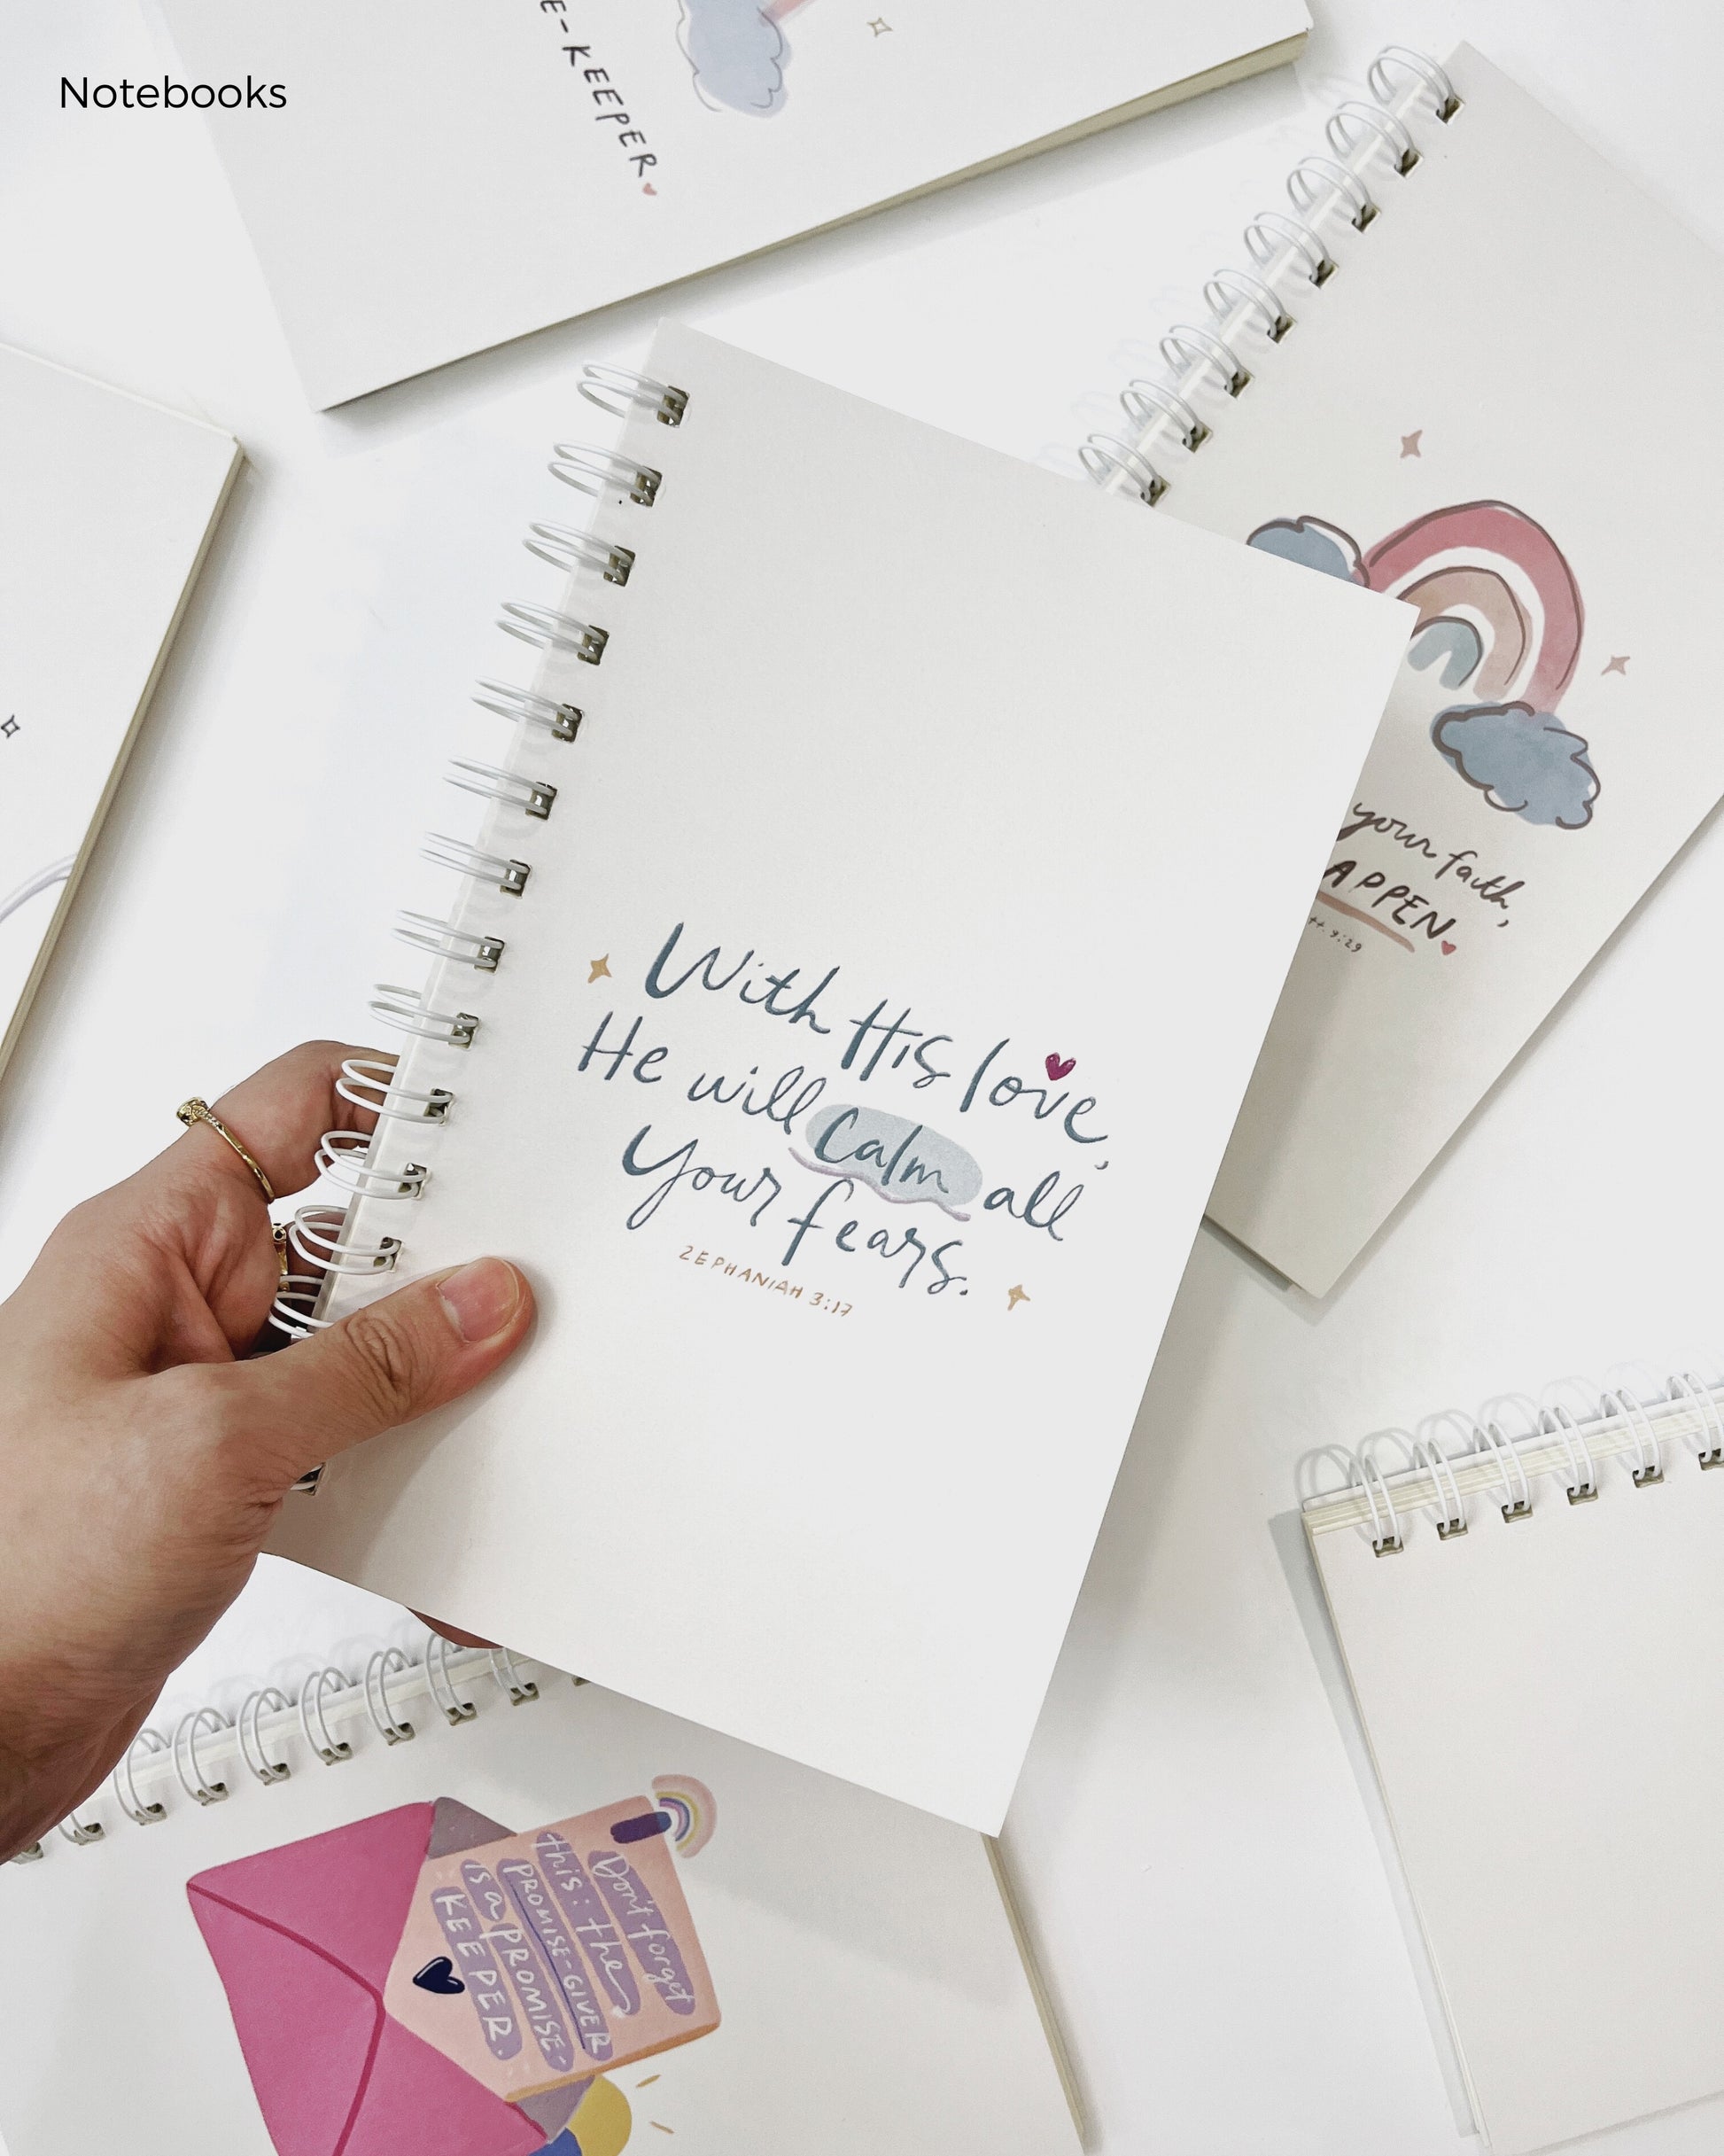 Notebooks
E-KEEPER
With His love,
He will calm all
your fears.
ZEPHANIAH 3:17
your faith,
APPEN
tt. 9:29
Don't forget
this: the
PROMISE-GIVER
is a PROMISE-
KEEPER.